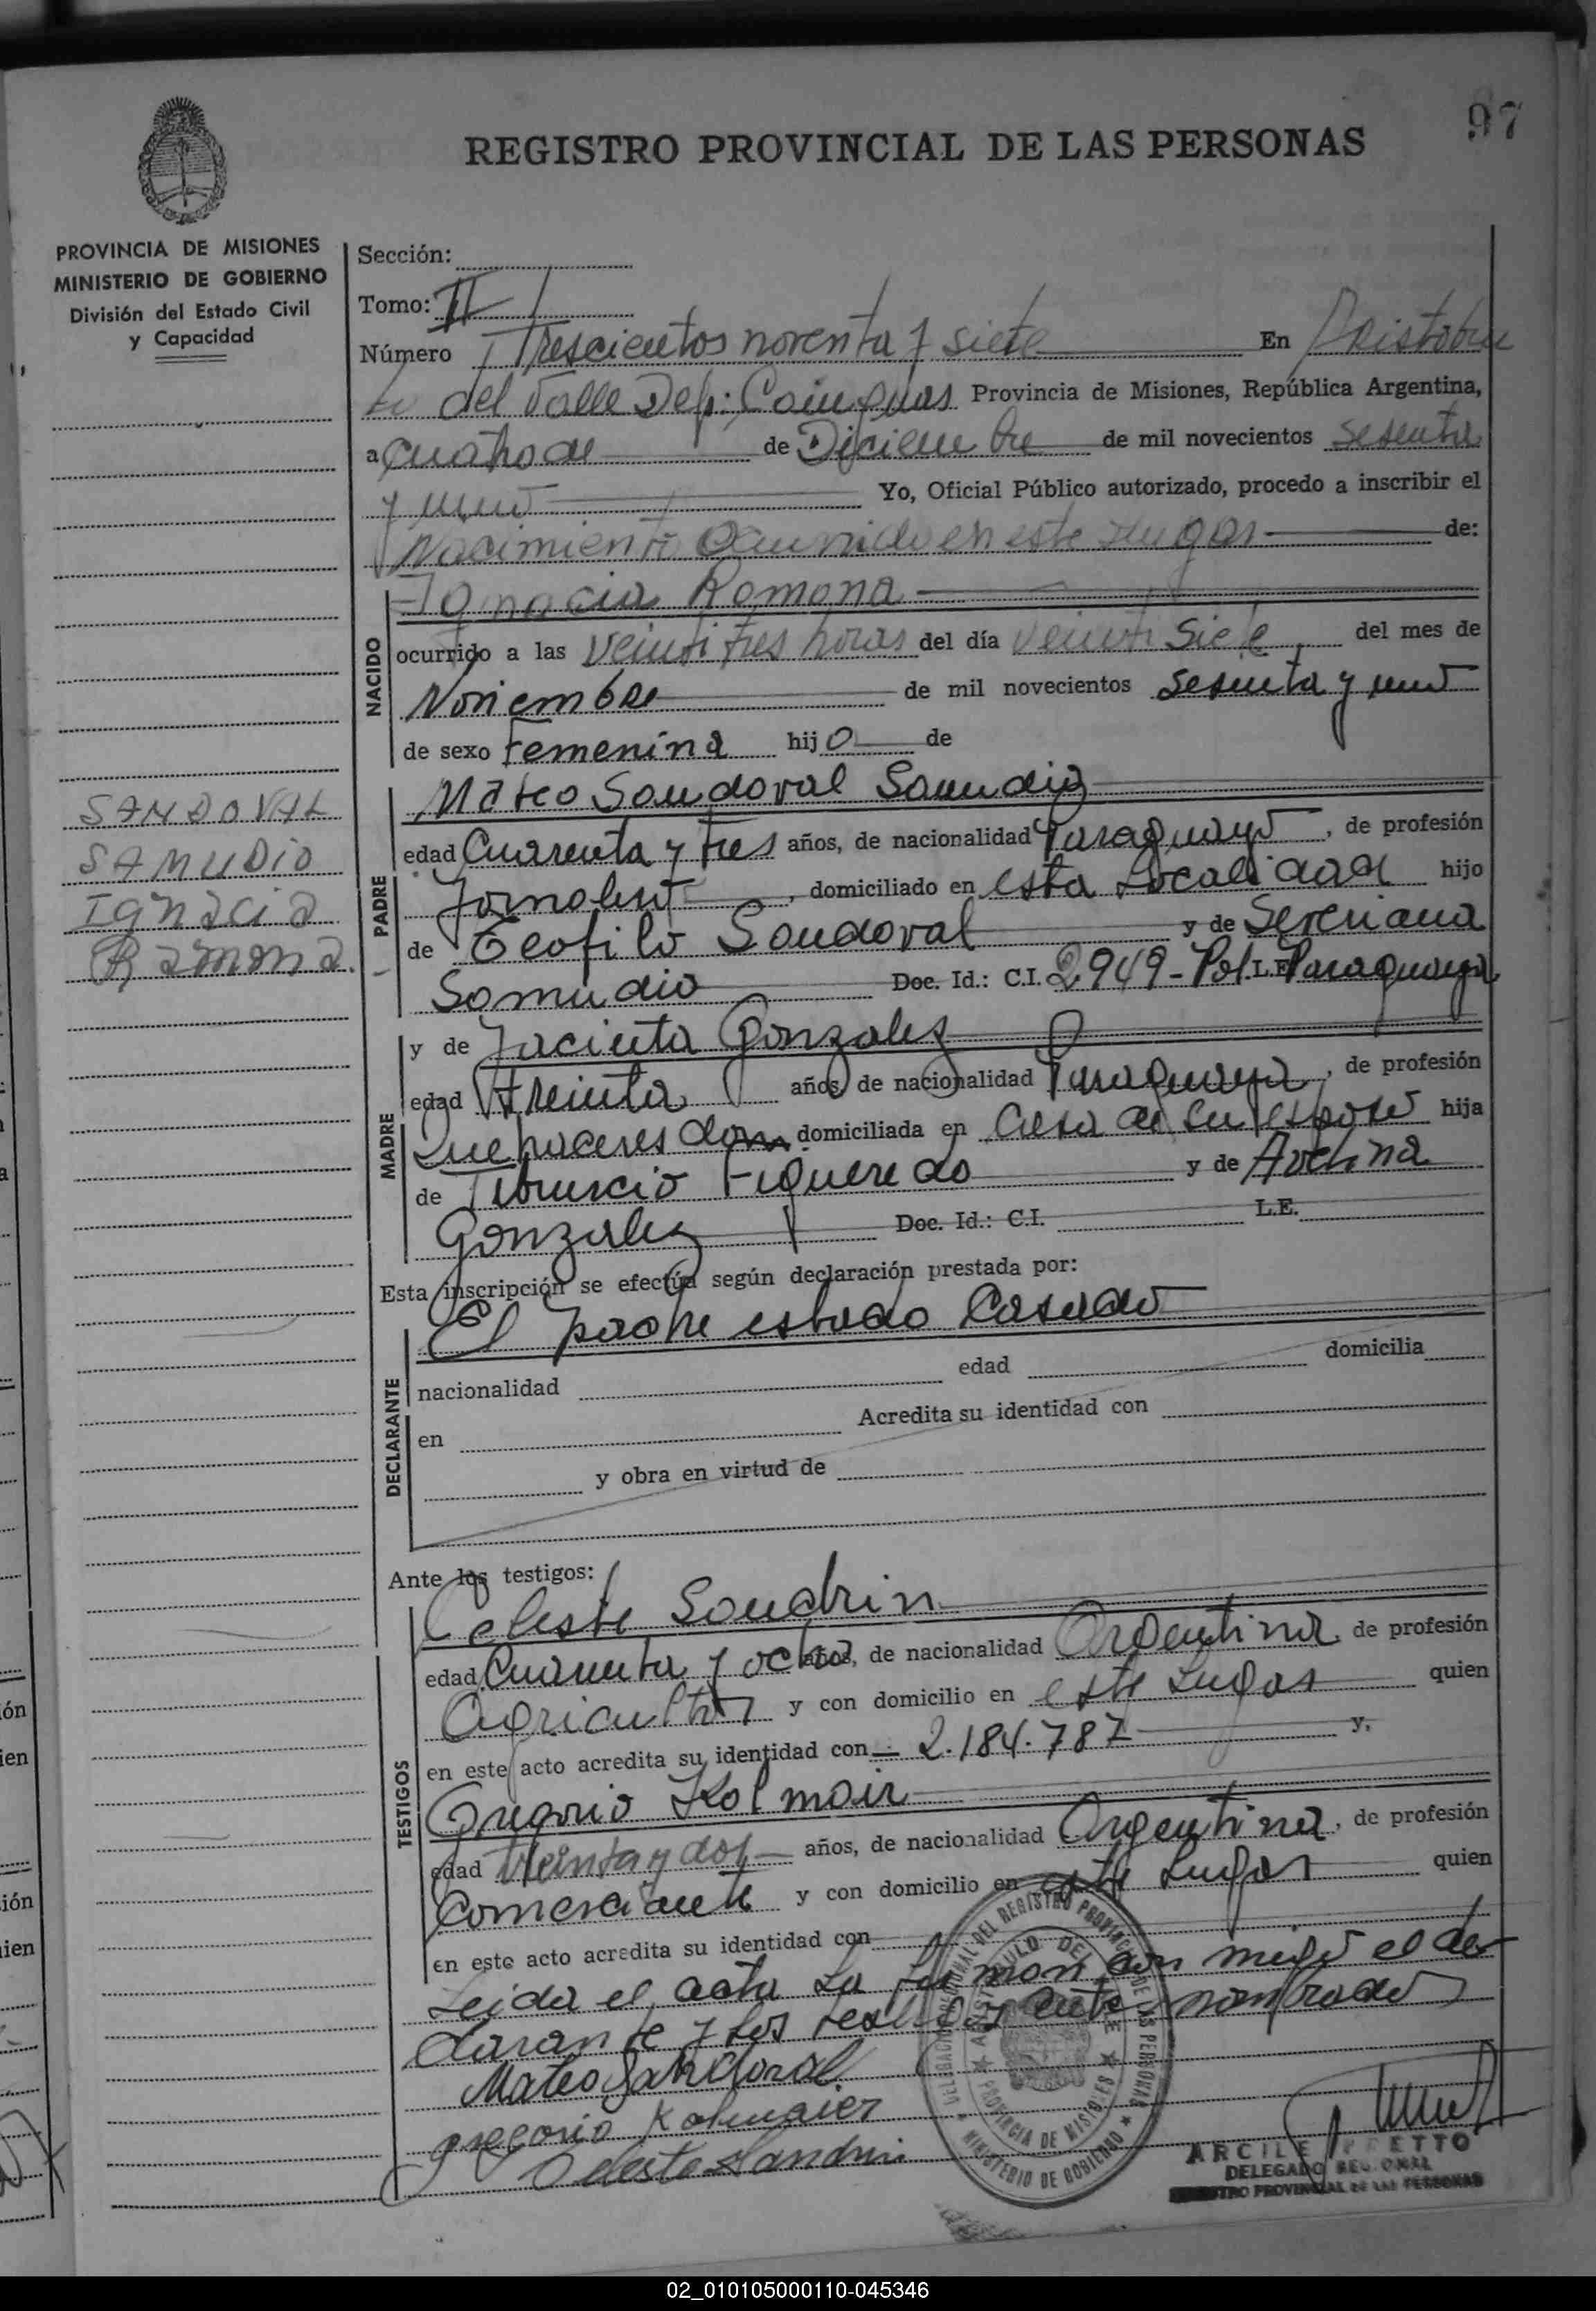 97
REGISTRO PROVINCIAL DE LAS PERSONAS
PROVINCIA DE MISIONES
MINISTERIO DE GOBIERNO
División del Estado Civil
y Capacidad
SANDOVAL
SAMUDIO
Ignacia
Ramona.
Sección:
Tomo: II
Número Trescientos noventa y siete En Aristobu
lo del Valle Dep: Cainguas Provincia de Misiones, República Argentina,
a cuatro de de Diciembre de mil novecientos sesenta
y uno Yo, Oficial Público autorizado, procedo a inscribir el
Nacimiento Ocurrido en este Lugar de:
NACIDO
Ignacia Ramona
ocurrido a las veinti tres horas del día veinti siete, del mes de
Noviembre de mil novecientos sesenta y uno
de sexo Femenina hijo de
PADRE
Mateo Sandoval Samudio
edad Cuarenta y tres años, de nacionalidad Paraguayo, de profesión
Jornalero, domiciliado en esta Localidad hijo
de Teofilo Sandoval y de Severiana
Samudio Doc. Id.: C.I. 2949-Pol. L.E. Paraguaya
MADRE
y de Jacinta Gonzalez
edad treinta años, de nacionalidad Paraguaya, de profesión
Quehaceres dom domiciliada en Casa de su esposo hija
de Tiburcio Figueredo y de Avelina
Gonzalez Doc. Id.: C.I. L.E.
Esta inscripción se efectúa según declaración prestada por:
DECLARANTE
El padre estado Casado
nacionalidad edad domicilia
en Acredita su identidad con
y obra en virtud de
Ante los testigos:
TESTIGOS
Celeste Sandrin
edad Cuarenta y ocho años, de nacionalidad Argentina, de profesión
Agricultor y con domicilio en este Lugar quien
en este acto acredita su identidad con 2.184.787 y,
Gregorio Kolmair
edad treinta y dos años, de nacionalidad Argentina, de profesión
Comerciante y con domicilio en este Lugar quien
en este acto acredita su identidad con
Leida el acta La firman con migo el de
clarante y los testigos ante nombrado
Mateo Sandoval
Gregorio Kolmaier
Celeste Sandrin
DELEGACION REGIONAL DEL REGISTRO PROVINCIAL DE LAS PERSONAS
MINISTERIO DE GOBIERNO
ARISTOBULO DEL VALLE
PROVINCIA DE MISIONES
DELEGADO REGIONAL
REGISTRO PROVINCIAL DE LAS PERSONAS
02_010105000110-045346